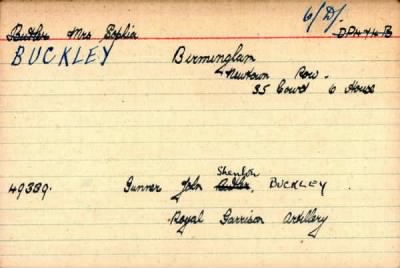 6/D/.
Butler Mrs Sophia DP4x4B
BUCKLEY Birmingham
Newtown Row.
35 Court 6 House
Shenton
49339. Gunner John Butler, BUCKLEY
Royal Garrison Artillery